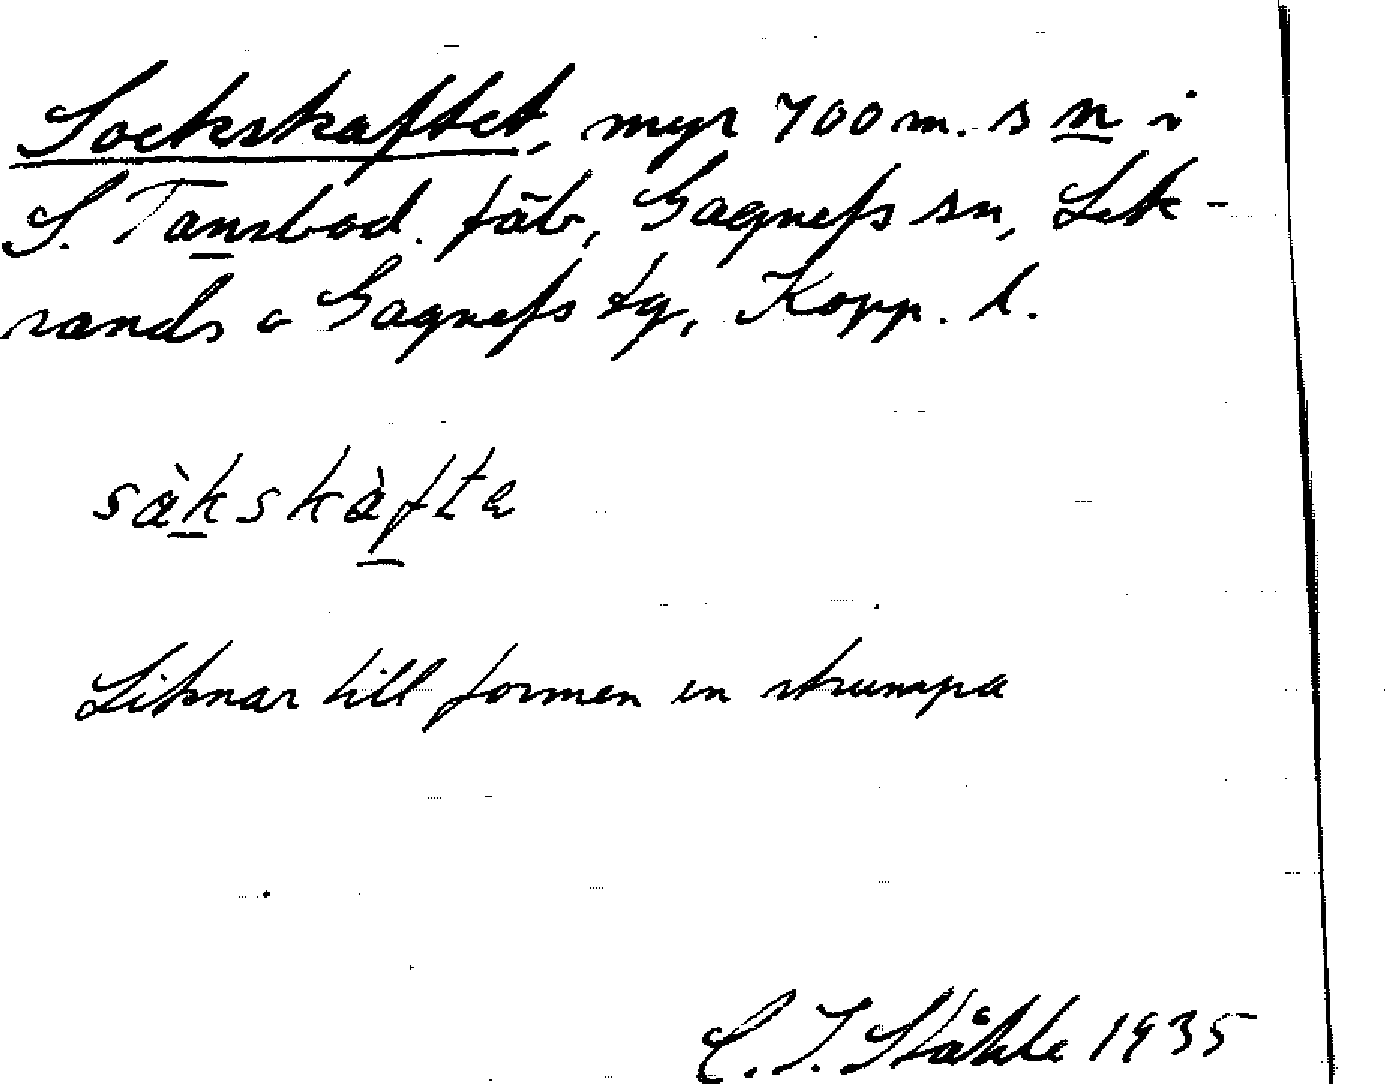 Sockskaftet, myr 700 m. s n i
S. Tansbod. fäb, Gagnefs sn, Lek-
sands o Gagnefs tg, Kopp. l.
sàkskàfta
Liknar till formen en strumpa
C. I. Ståhle 1935